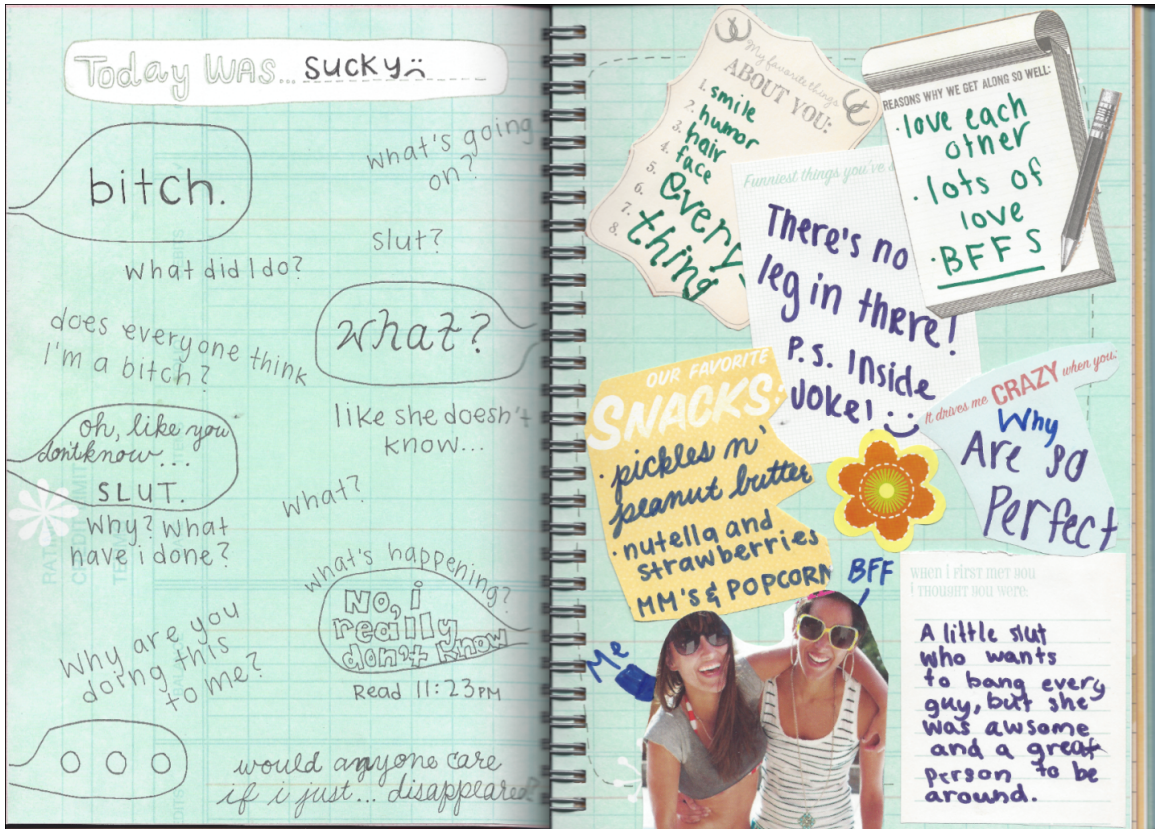 Today WAS... sucky
bitch.
what's going
on?
slut?
what did I do?
what?
does everyone think
I'm a bitch?
like she doesn't
know...
oh, like you
don't know...
SLUT.
what?
why? what
have i done?
what's happening?
No, i
really
don't know
Read 11:23 PM
why are you
doing this
to me?
would anyone care
if i just... disappeared?
My favorite things
ABOUT YOU:
1. smile
2. humor
3. hair
4. face
5.
6. every-
7. thing
8.
REASONS WHY WE GET ALONG SO WELL:
· love each
other
· lots of
love
· BFFS
Funniest things you've
There's no
leg in there!
P.S. Inside
Joke!
OUR FAVORITE
SNACKS:
· pickles n'
peanut butter
· nutella and
strawberries
MM's & POPCORN
It drives me CRAZY when you:
Why
Are so
Perfect
Me
BFF
when I first met you
I thought you were:
A little slut
who wants
to bang every
guy, but she
was awsome
and a great
person to be
around.